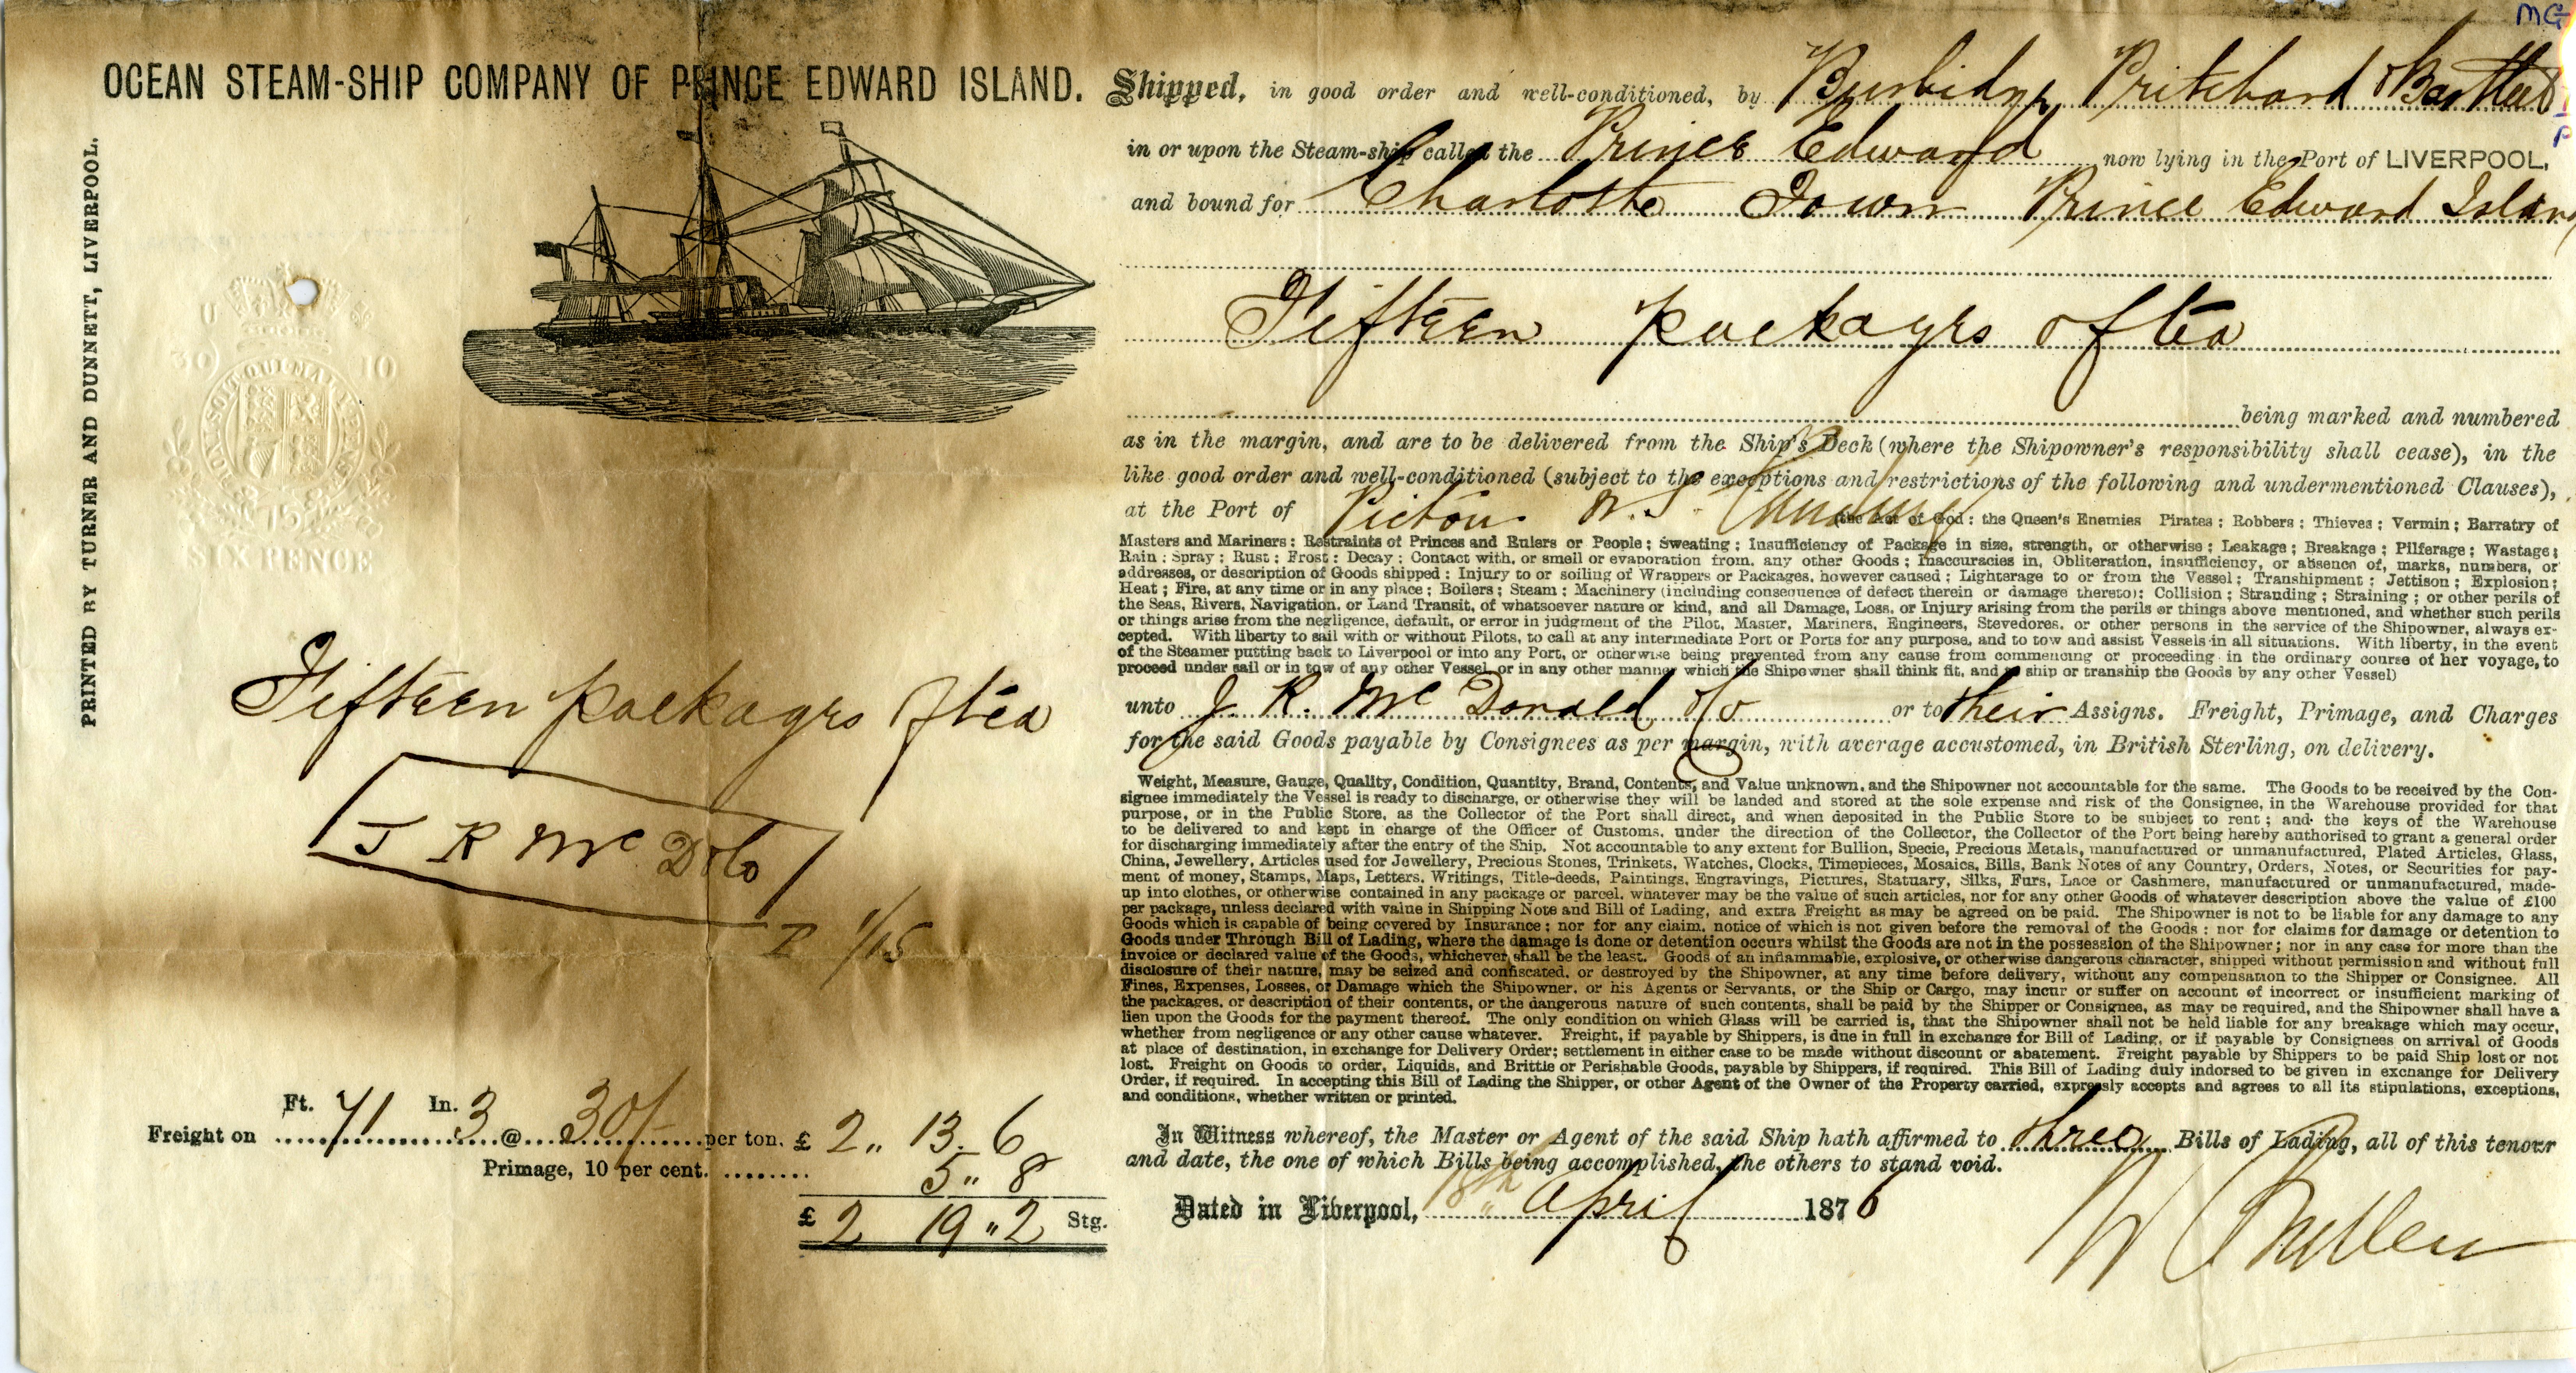 MG
OCEAN STEAM-SHIP COMPANY OF PRINCE EDWARD ISLAND.
PRINTED BY TURNER AND DUNNETT, LIVERPOOL.
HONI SOIT QUI MAL Y PENSE
SIX PENCE
Fifteen packages of tea
J R McD & Co
1/15
Ft. In.
Freight on 71 3 @ 30/- per ton. £ 2 " 13. 6
Primage, 10 per cent. ........ 5 " 8
£ 2 19 " 2 Stg.
Shipped, in good order and well-conditioned, by Burbidge Pritchard & Bartleet
in or upon the Steam-ship called the Prince Edward now lying in the Port of LIVERPOOL,
and bound for Charlotte Town Prince Edward Island
Fifteen packages of tea
being marked and numbered
as in the margin, and are to be delivered from the Ship's Deck (where the Shipowner's responsibility shall cease), in the
like good order and well-conditioned (subject to the exceptions and restrictions of the following and undermentioned Clauses),
at the Port of Pictou N.S. (the Act of God: the Queen's Enemies Pirates; Robbers; Thieves; Vermin; Barratry of
Masters and Mariners: Restraints of Princes and Rulers or People; Sweating; Insufficiency of Package in size, strength, or otherwise; Leakage; Breakage; Pilferage; Wastage;
Rain; Spray; Rust; Frost; Decay; Contact with, or smell or evaporation from, any other Goods; Inaccuracies in, Obliteration, insufficiency, or absence of, marks, numbers, or
addresses, or description of Goods shipped; Injury to or soiling of Wrappers or Packages, however caused; Lighterage to or from the Vessel; Transhipment; Jettison; Explosion;
Heat; Fire, at any time or in any place; Boilers; Steam; Machinery (including consequence of defect therein or damage thereto); Collision; Stranding; Straining; or other perils of
the Seas, Rivers, Navigation, or Land Transit, of whatsoever nature or kind, and all Damage, Loss, or Injury arising from the perils or things above mentioned, and whether such perils
or things arise from the negligence, default, or error in judgment of the Pilot, Master, Mariners, Engineers, Stevedores, or other persons in the service of the Shipowner, always ex-
cepted. With liberty to sail with or without Pilots, to call at any intermediate Port or Ports for any purpose, and to tow and assist Vessels in all situations. With liberty, in the event
of the Steamer putting back to Liverpool or into any Port, or otherwise being prevented from any cause from commencing or proceeding in the ordinary course of her voyage, to
proceed under sail or in tow of any other Vessel, or in any other manner which the Shipowner shall think fit, and to ship or tranship the Goods by any other Vessel)
unto J. R. McDonald & Co or to their Assigns. Freight, Primage, and Charges
for the said Goods payable by Consignees as per margin, with average accustomed, in British Sterling, on delivery.
Weight, Measure, Gauge, Quality, Condition, Quantity, Brand, Contents, and Value unknown, and the Shipowner not accountable for the same. The Goods to be received by the Con-
signee immediately the Vessel is ready to discharge, or otherwise they will be landed and stored at the sole expense and risk of the Consignee, in the Warehouse provided for that
purpose, or in the Public Store, as the Collector of the Port shall direct, and when deposited in the Public Store to be subject to rent; and the keys of the Warehouse
to be delivered to and kept in charge of the Officer of Customs, under the direction of the Collector, the Collector of the Port being hereby authorised to grant a general order
for discharging immediately after the entry of the Ship. Not accountable to any extent for Bullion, Specie, Precious Metals, manufactured or unmanufactured, Plated Articles, Glass,
China, Jewellery, Articles used for Jewellery, Precious Stones, Trinkets, Watches, Clocks, Timepieces, Mosaics, Bills, Bank Notes of any Country, Orders, Notes, or Securities for pay-
ment of money, Stamps, Maps, Letters, Writings, Title-deeds, Paintings, Engravings, Pictures, Statuary, Silks, Furs, Lace or Cashmere, manufactured or unmanufactured, made-
up into clothes, or otherwise contained in any package or parcel, whatever may be the value of such articles, nor for any other Goods of whatever description above the value of £100
per package, unless declared with value in Shipping Note and Bill of Lading, and extra Freight as may be agreed on be paid. The Shipowner is not to be liable for any damage to any
Goods which is capable of being covered by Insurance; nor for any claim, notice of which is not given before the removal of the Goods; nor for claims for damage or detention to
Goods under Through Bill of Lading, where the damage is done or detention occurs whilst the Goods are not in the possession of the Shipowner; nor in any case for more than the
invoice or declared value of the Goods, whichever shall be the least. Goods of an inflammable, explosive, or otherwise dangerous character, shipped without permission and without full
disclosure of their nature, may be seized and confiscated, or destroyed by the Shipowner, at any time before delivery, without any compensation to the Shipper or Consignee. All
Fines, Expenses, Losses, or Damage which the Shipowner, or his Agents or Servants, or the Ship or Cargo, may incur or suffer on account of incorrect or insufficient marking of
the packages, or description of their contents, or the dangerous nature of such contents, shall be paid by the Shipper or Consignee, as may be required, and the Shipowner shall have a
lien upon the Goods for the payment thereof. The only condition on which Glass will be carried is, that the Shipowner shall not be held liable for any breakage which may occur,
whether from negligence or any other cause whatever. Freight, if payable by Shippers, is due in full in exchange for Bill of Lading, or if payable by Consignees on arrival of Goods
at place of destination, in exchange for Delivery Order; settlement in either case to be made without discount or abatement. Freight payable by Shippers to be paid Ship lost or not
lost. Freight on Goods to order, Liquids, and Brittle or Perishable Goods, payable by Shippers, if required. This Bill of Lading duly indorsed to be given in exchange for Delivery
Order, if required. In accepting this Bill of Lading the Shipper, or other Agent of the Owner of the Property carried, expressly accepts and agrees to all its stipulations, exceptions,
and conditions, whether written or printed.
In Witness whereof, the Master or Agent of the said Ship hath affirmed to three Bills of Lading, all of this tenour
and date, the one of which Bills being accomplished, the others to stand void.
Dated in Liverpool, 18th April 1876